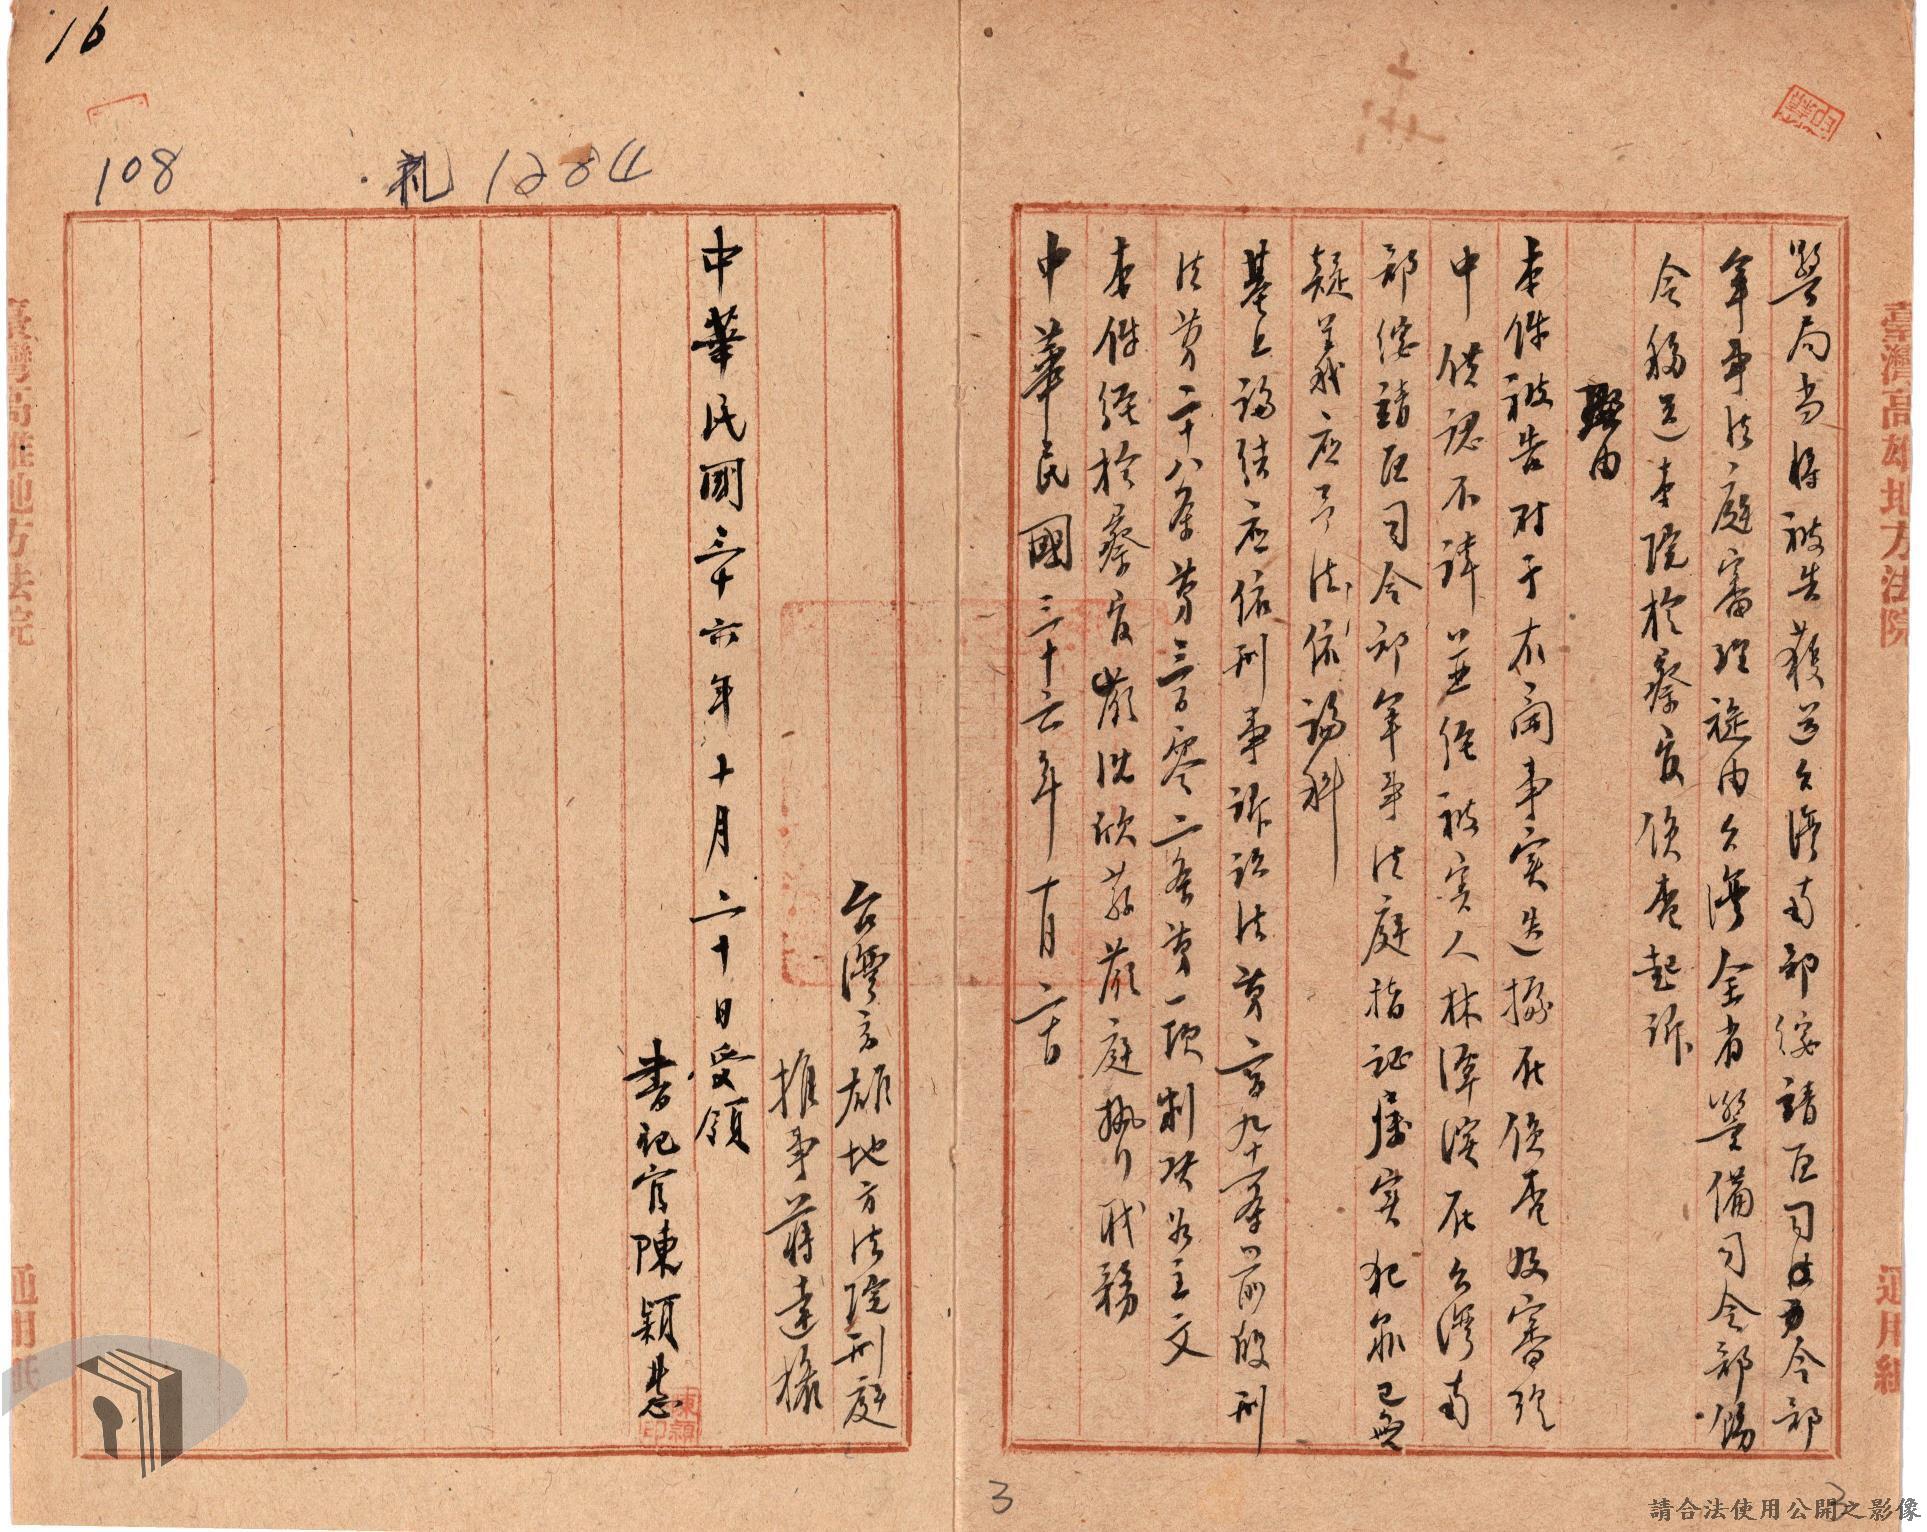 16
108
札 1284
警局当将被告獲送台灣南部綏靖区司令部
軍事法庭審理旋由台灣全省警備司令部飭
令移送本院檢察官偵查起訴
理由
本件被告对于右開事实迭據在偵查及審理
中供認不諱並經被害人林潭濱在台灣南
部綏靖区司令部軍事法庭指証屬实犯罪已無
疑義应予法依論科
基上論結应依刑事訴訟法第二百九十一条前段刑
法第二十八条第三百零二条第一項判决如主文
本件經檢察官
庭執行職務
中華民國三十六年十月二十日
台灣高雄地方法院刑庭
推事蔣達
中華民國三十六年十月二十日受領
書記官陳穎慧
臺灣高雄地方法院
通用紙
臺灣高雄地方法院
通用紙
3
3
請合法使用公開之影像